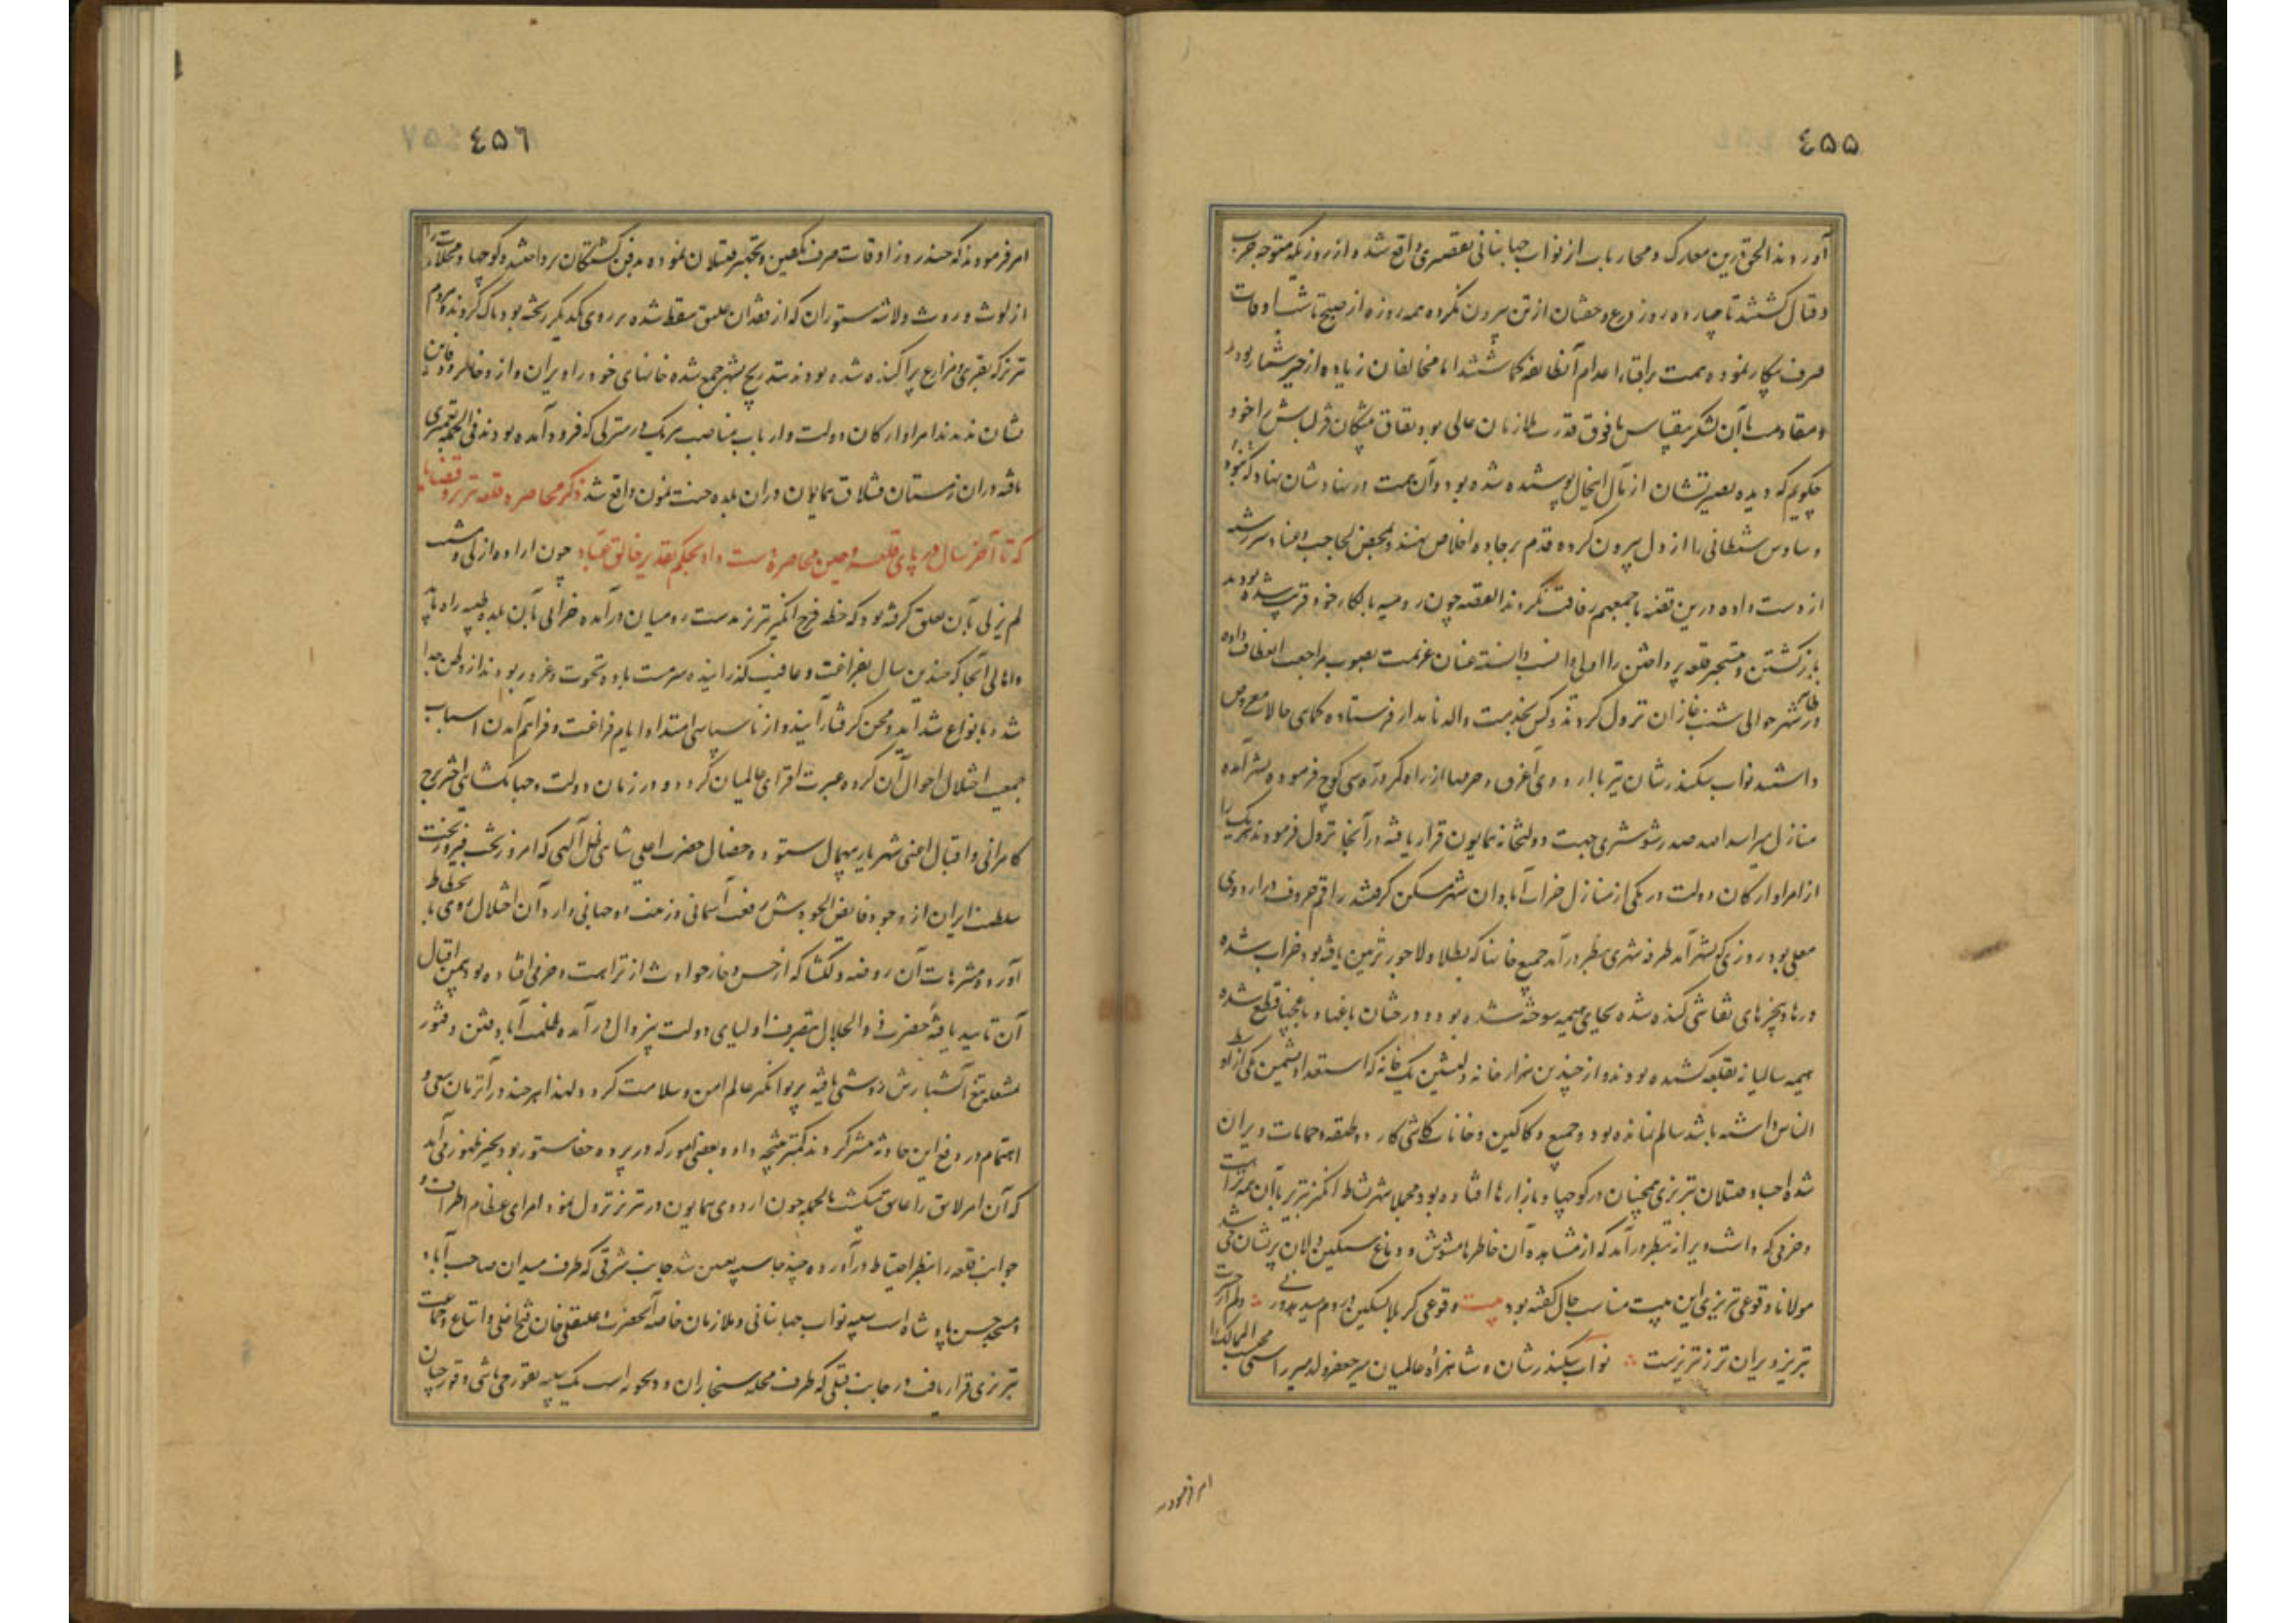 ٤٥٥
آوردند الحق درین معارک و محاربات از نواب جهانبانی تقصیری واقع نشد و از روزیکه متوجه حرب
و قتال گشتند تا چهارده روز درع و خفتان از تن بیرون نکرده همه روزه از صبح تا شب اوقات
صرف پیکار نموده همت بر افنا و اعدام آن طایفه گماشتند اما مخالفان زیاده از حیز شمار بودند
و مقاومت با آن لشکر بیقیاس مافوق قدرت ملازمان عالی بود نفاق پیشگان قزلباش را خود
چگویم که دیده بصیرتشان از مآل اینحال پوشیده شده بود و آن همت در نهادشان نبود که
وساوس شیطانی را از دل بیرون کرده قدم بر جاده اخلاص نهند و بمحض لجاجت و عناد سر رشته
از دست داده درین قضیه با جمعیم رفاقت نکردند القصه چون رومیه بابکار خود قریب شده بودند
بازگشتن و بتسخیر قلعه پرداختن را اولی و انسب دانسته عنان عزیمت بصوب مراجعت انعطاف داده
در ظاهر شهر حوالی شنب غازان نزول کردند و کس بخدمت والد نامدار فرستاده کماهی حالات معروض
داشتند نواب سکندرشان نیز با اردوی اغرق و حرمها از راه کوچ فرموده بشهر آمده
منازل میر اسد الله صدر شوشتری جهت دولتخانه همایون قرار یافته در آنجا نزول فرمودند هریک را
از امرا و ارکان دولت در یکی از منازل خراب آبادان شهر مسکن گرفتند راقم حروف در اردوی
معلی بود روزی که بشهر آمد طرفه شهری بنظر درآمد جمیع خانها که بطلا و لاجورد تزیین یافته بود خراب شده
درها و پنجرهای نقاشی کنده شده بجای هیمه سوخته شده بود و درختان باغها و باغچها قطع شده
هیمه سالیانه بقلعه کشیده بودند و از چندین هزار خانه دلنشین یک خانه که استعداد نشیمن یکی از اوساط
الناس داشته باشد سالم نمانده بود و جمیع دکاکین و خانات کاشی کار دو طبقه و حمامات ویران
شده اجساد مقتولان تبریزی همچنان در کوچها و بازارها افتاده بود مجملا شهر نشاط انگیز تبریز با آن همه نزاهت
و خرمی که داشت ویران بنظر درآمد که از مشاهده آن خاطرها مشوش و دماغ سنگین دلان پریشان می شد
مولانا وقوعی تبریزی این بیت مناسب حال گفته بود بیت وقوعی کربلا مسکین و روم
تبریز ویران تر ز تبریزست نواب سکندرشان و شاهزاده عالمیان میر جعفر ولد میر را محتسب الممالک
امر فرمودند
٤٥٦
امر فرمودند که چند روز اوقات صرف تکفین و تجهیز مقتولان نموده بدفن کشتگان پرداختند و کوچها و محلات را
از لوث و روث و لاشه ستوران که از فقدان علیق سقط شده بر روی یکدیگر ریخته بود پاک گردند و مردم
تبریز که بقری و مزارع پراکنده شده بودند بتدریج بشهر جمع شده خانهای خود را ویران و از ذخایر و دفاین
نشان ندیدند امرا و ارکان دولت و ارباب مناصب هریک در منزلی که فرود آمده بودند فی الجمله تعمیری
یافته دران زمستان قشلاق همایون دران بلده جنت نمون واقع شد ذکر محاصره قلعه تبریز و قضایا
که تا آخر سال در پای قلعه و حین محاصره دست داد بحکم تقدیر خالق عباد چون اراده ازلی و مشیت
لم یزلی بآن تعلق گرفته بود که خطه فرح انگیز تبریز بدست رومیان درآمده خرابی بآن بلده طیبه راه یابد
و اهالی آنجا که چندین سال بفراغت و عافیت گذرانیده سرمست باده نخوت و غرور بودند از وطن جدا
شده بانواع شداید و محن گرفتار آیند و از ناسپاسی امتداد ایام فراغت و فراهم آمدن اسباب
جمعیت اختلال احوال آن گروه عبرت افزای عالمیان گردد و در زمان دولت و جهانگشایی
کامرانی و اقبال اعنی شهریار بیهمال ستوده خصال حضرت اعلی شاهی ظل آلهی که امروز تخت فیروزبخت
سلطنت ایران از وجود فایض الجودش رفعت آسمانی و زینت جهانی دارد آن اختلال روی بانحطاط
آورده و منتزهات آن روضه دلگشا که از خس و خار حوادث از نزاهت و خرمی افتاده بود بیمن اقبال
آن تایید یافته حضرت ذوالجلال بتصرف اولیای دولت بیزوال درآمده ظلمت آباد فتن و فتور
بشعله تیغ آتشبارش روشنی یافته پرتو انگیز عالم امن و سلامت گردد و لهذا هرچند در آنزمان سعی و
اهتمام در دفع این حادثه بیشتر کردند کمتر نتیجه داد و بعضی امور که در پرده خفا مستور بود بحیز ظهور می آمد
که آن امر لایق را عایق میگشت بالجمله چون اردوی همایون در تبریز نزول نمود امرای عظام اطراف و
جوانب قلعه را بنظر احتیاط درآورده چند جا سیبه تعیین شد جانب شرقی که طرف میدان صاحب آباد
و مسجد حسن پادشاه است سیبه نواب جهانبانی و ملازمان خاصه آنحضرت و علیقلی خان فتح اغلی و اتباع و جماعت
تبریزی قرار یافت و در جانب قبلی که طرف محله سنجاران و دیحویه است یک سیبه بقورچی باشی و قورچیان